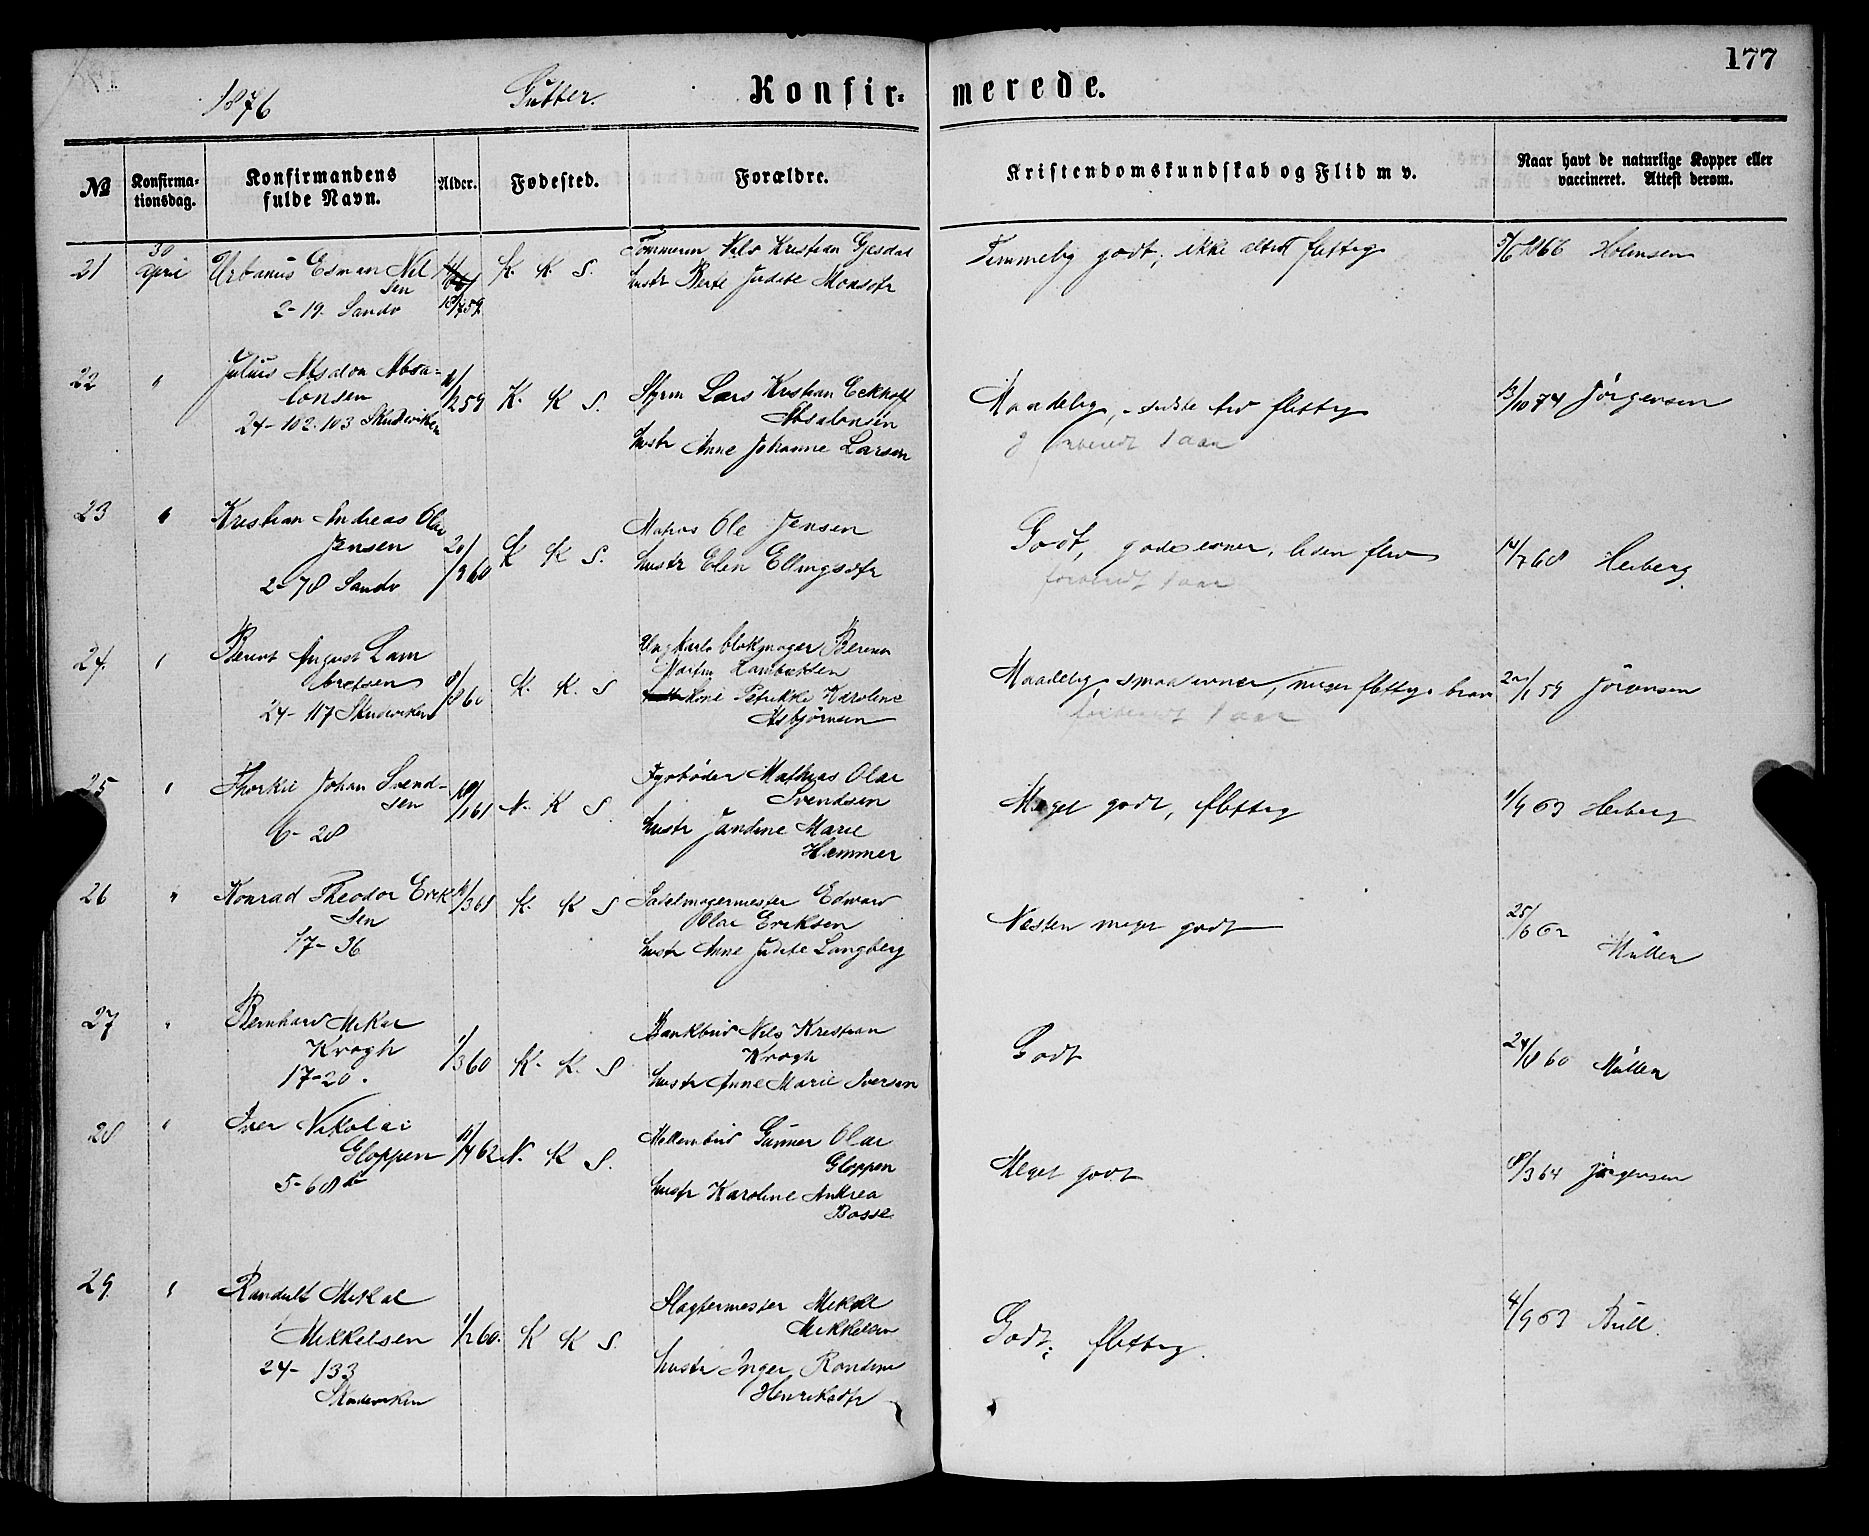 177
1876 Gutter. Konfir= merede.
№ Konfirma=tionsdag. Konfirmandens fulde Navn. Alder. Fødested. Forældre. Kristendomskundskab og Flid m v. Naar havt de naturlige Kopper eller vaccineret. Attest derom.
21 30 april Urbanus Esman Nil
sen
2-19. Sandv
10/7 59.
K. K. S.
Tømmerm Nils Kristian Gjesdal
hustr Berte Judite Monsdtr
Temmelig godt, ikke altid flittig
5/6 1866 Holmsen
22 " Julius Absalon Absa=
lonsen
24-102.103 Skudeviken
/2 59
K. K S.
Styrm Lars Kristian Eckhoff
Absalonsen
hustr Anne Johanne Larsen
Maadelig, sidste tid flittig
forberedt 1 aar
13/10 74 Jørgensen
23 " Kristian Andreas Olai
Jensen
2-78 Sandv
20/3 60
K K S.
Matros Ole Jensen
hustr Elen Ellingsdtr
Godt, gode evner, liden flid
forberedt 1 aar
14/7 68 Heiberg.
24. " Berent August Lam
bretsen
24-117 Skudeviken
8/8 60
K. K. S
Ungkarls blokmager Berent
Martin Lambretsen
kone Petrikke Karoline
Asbjørnsen
Maadelig, smaa evner, meget flittig o brav
forberedt 1 aar
20/1 54 Jørgensen
25 " Thorkil Johan Svend-
sen
6-28
10/1 61
N. K S.
Fyrbøder Mathias Olai
Svendsen
hustr Jandine Marie
Hemmer
Meget godt, flittig
1/9 63 Heiberg
26 " Konrad Theodor Erik
sen
17-36
/3 61
K. K S
Sadelmagermester Edward
Olai Eriksen
hustr Anne Judite Langberg
Næsten meget godt
25/6 62
Müller
27 " Bernhard Mikal
Krogh
17-20.
1/3 60
K. K. S
Bankbud Nils Kristian
Krogh
hustr Anne Marie Iversen
Godt
24/8 60 Müller
28 " Iver Nikolai
Gloppen
5-68 b
11/4 62
N. K S.
Møllembud Gunner Olai
Gloppen
hustr Karoline Andrea
Bosse
Meget godt
8/3 64 Jørgensen
29. " Randulf Mikal
Mikkelsen
24-133
Skudeviken
1/2 60.
K K S.
Slagtermester Mikal
Mikkelsen
hustr Inger Rondine
Henriksdtr
Godt; flittig.
4/9 63 Bull.